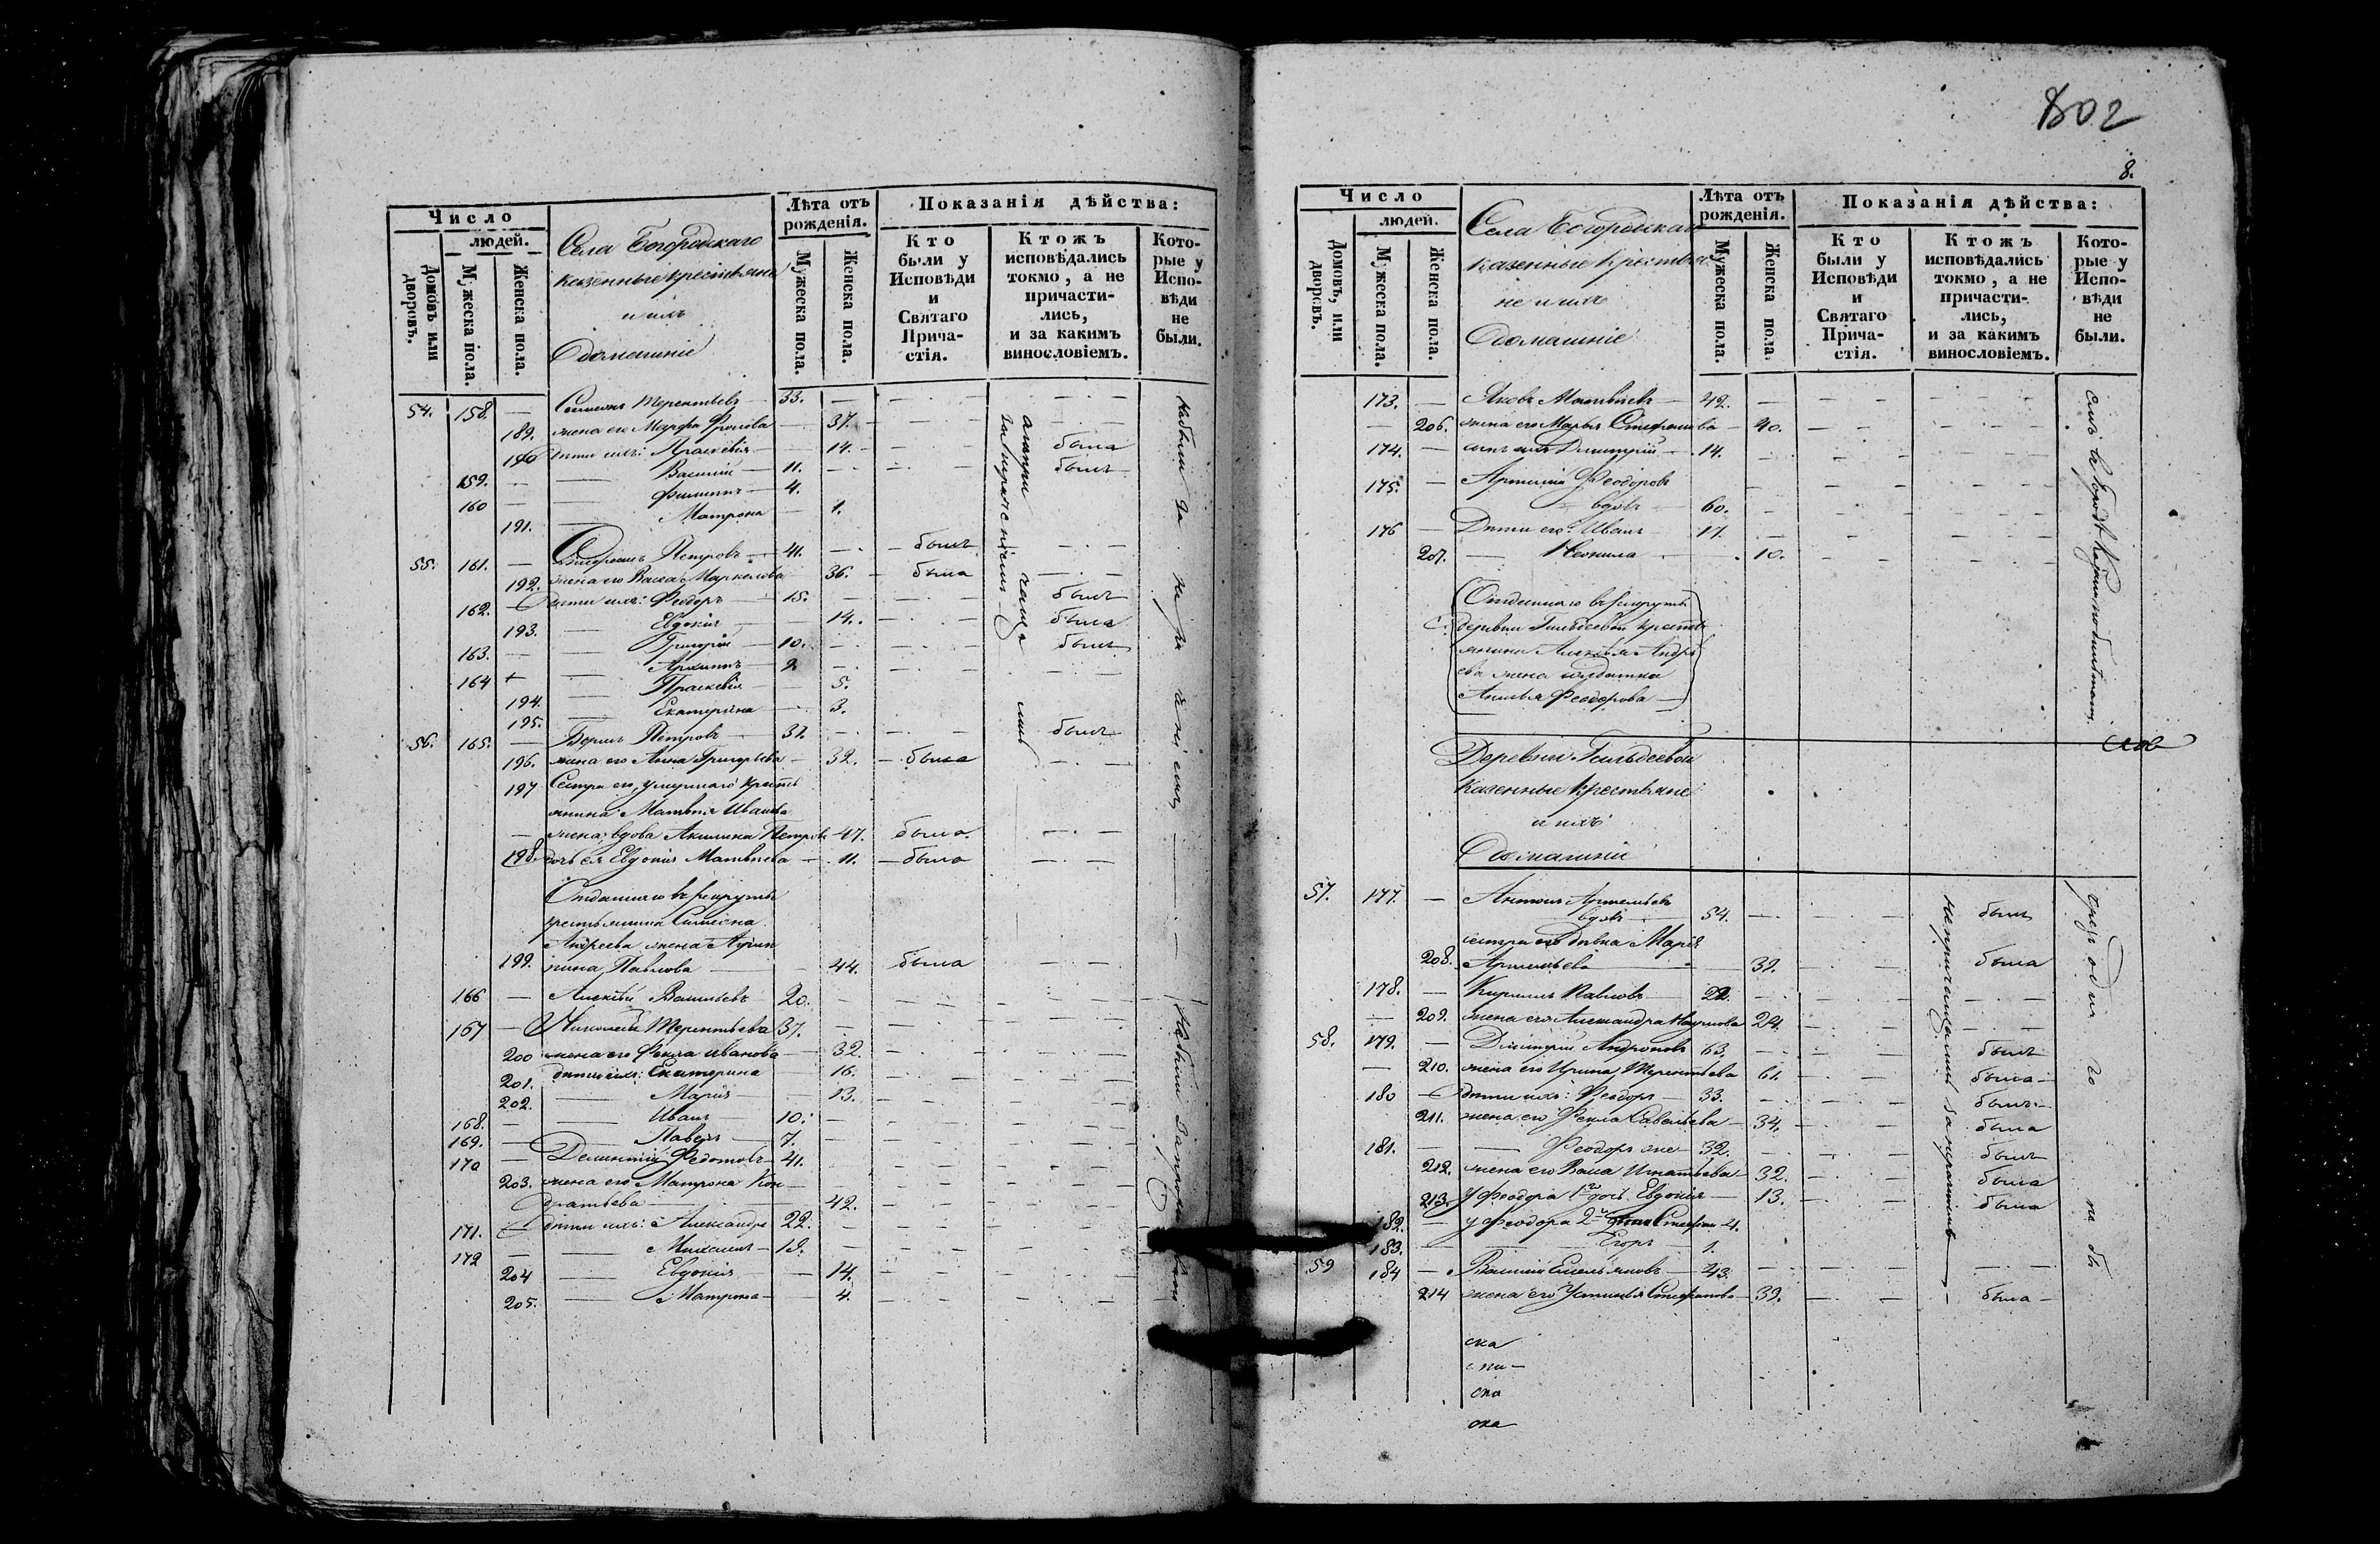 Число
людей.
Домовъ или дворовъ.
Мужеска пола.
Женска пола.
Села Богородскаго
казенные крестьяне
и ихъ
Домашніе
Лѣта отъ рожденія.
Мужеска пола.
Женска пола.
Показанія дѣйства:
Кто были у Исповѣди и Святаго Прича-стія.
Ктожъ исповѣдались токмо, а не причасти-лись, и за какимъ винословіемъ.
Кото-рые у Испо-вѣди не были.
54. 158. — Терентьевъ — 33. —
189. жена его Марфа Фролова — 37. —
190 дѣти ихъ: Праскевія — 14. — была
159. — Василій — 11. — былъ
160 — Филиппъ — 4.
191. Матрона — 1.
55. 161. — Стефанъ Петровъ — 41. — былъ
192. жена его Васса Маркелова 36. — была
162. — Дѣти ихъ: Феодоръ — 15. — былъ
193. Евдокія — 14. — была
163. — Григорій — 10. — былъ
164 Архиппъ — 2
194. Праскевія — 5.
195. Екатерина — 3.
56. 165. — Петровъ — 31. — былъ
196. жена его Анна Григорьева — 32. — была
197 Сестра его, умершаго кресть
янина Матвѣя Иванова
— жена, вдова Акилина Петрова 47. была
198. дочь ея Евдокія Матвѣева — 11. — была
Отданнаго въ рекруты
крестьянина Симеона
Андреева жена
199. Павлова — 44. была
166 — Алексѣй Васильевъ 20.
167 — Николай Терентьевъ 37.
200 жена его Фекла Иванова — 32.
201. дѣти ихъ: Екатерина — 16.
202. Марія — 13.
168. — Иванъ 10.
169. — Павелъ — 7.
170 — Дементій Федотовъ 41.
203. жена его Матрона Кон
дратьева — 42.
171. дѣти ихъ: Александръ 22.
172 — Михаилъ — 18.
204 Евдокія — 14.
205. Матрона — 4.
802
8.
Число
людей.
Домовъ, или дворовъ.
Мужеска пола.
Женска пола.
Села Богородскаго
казенные крестья
не и ихъ
Домашніе
Лѣта отъ рожденія.
Мужеска пола.
Женска пола.
Показанія дѣйства:
Кто были у Исповѣди и Святаго Прича-стія.
Ктожъ исповѣдались токмо, а не причасти-лись, и за какимъ винословіемъ.
Кото-рые у Испо-вѣди не были.
173. — Яковъ Матвѣевъ — 42. —
— 206. жена его Марья Стефанова — 40.
174. — сынъ ихъ Димитрій — 14.
175. — Артемій Феодоровъ
вдовъ — 60. —
176 — Дѣти его: Иванъ — 17.
207. — Неонила — 10.
Отданнаго въ рекруты
деревни Гильдеевой кресть
янина Алексѣя Андре
ева жена солдатка
Феодорова —
Деревни Гильдеевой
Казенные крестьяне
и ихъ
Домашніе
57. 177. — Антонъ Артемьевъ
вдовъ — 54. — былъ
сестра его дѣвка Марія
208. Артемьева — 39. — была
178. — Кириллъ Павловъ 22.
— 209. жена его Александра Наумова 24.
58. 179. — Димитрій Андроновъ 63. — былъ
— 210. жена его Ирина Терентьева 61. — была
180 — дѣти ихъ: Феодоръ — 33. — былъ
211. жена его Фекла Савельева — 34. — была
181. — Феодоръ же — 32. — былъ
212. жена его Васса Игнатьева — 32. — была
213. у Феодора 1го дочь Евдокія — 13. — была
182. — у Феодора 2го Стефанъ 4.
183. — Егоръ — 1.
59 184 — Василій Емельяновъ — 43.
214 жена его Устинья Стефанова — 39. — была
ска
ска